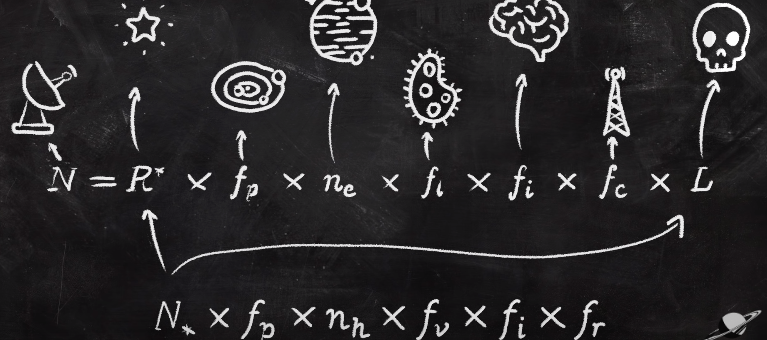 N = R* × fp × ne × fl × fi × fc × L
N* × fp × nh × fv × fi × fr